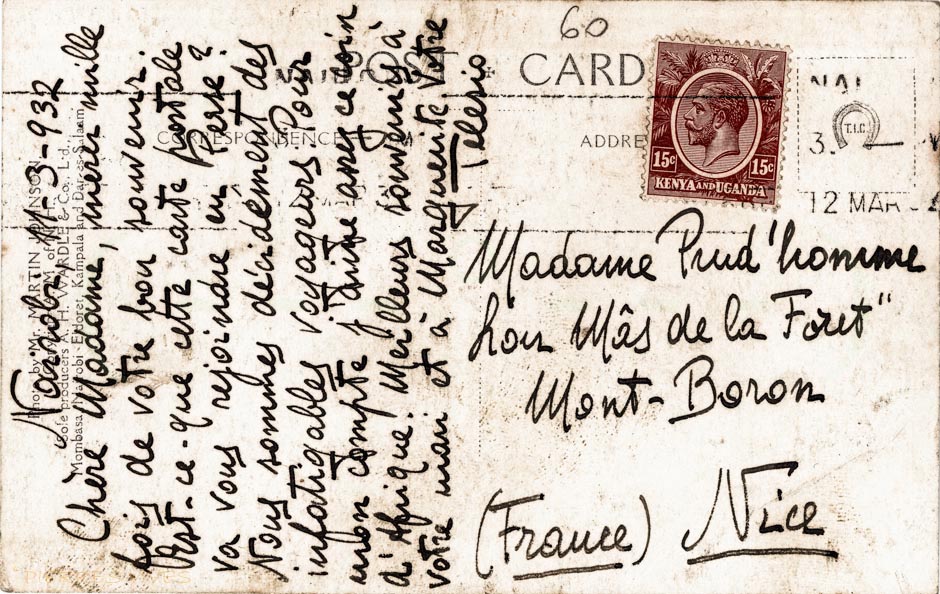 60
POST CARD
CORRESPONDENCE
ADDRE
15c 15c
KENYA AND UGANDA
NAI
3.
T.I.C.
12 MAR
Photo by Mr. MARTIN JOHNSON
Sole producers A. H. WARDLE & Co., Ltd.,
Mombasa, Nairobi, Eldoret, Kampala and Dar-es-Salaam
Nairobi 11-3-932
Chère Madame, merci mille
fois de votre bon souvenir.
Est-ce-que cette carte postale
va vous rejoindre en Perse?
Nous sommes décidément des
infatigables voyageurs. Pour
mon compte j'aime assez ce coin
d'Afrique! Meilleurs souvenirs à
votre mari et à Marguerite. Votre
Telesio
Madame Prud'homme
Mâs de la Foret"
Mont-Boron
Nice
(France)